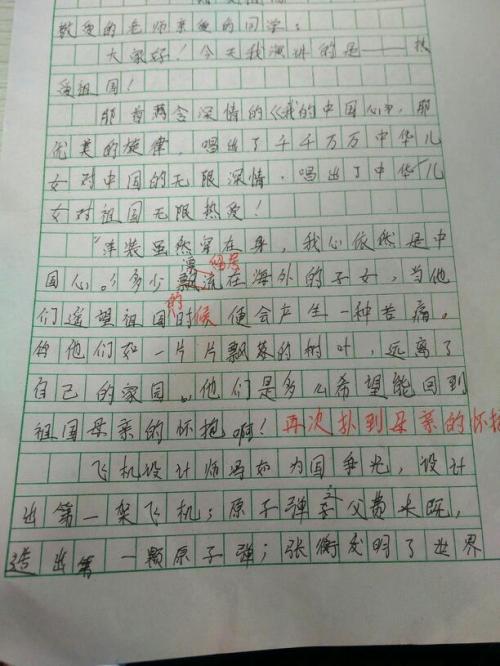 敬爱的老师亲爱的同学:
大家好!今天我演讲的是——我
爱祖国!
那首饱含深情的《我的中国心》,那
优美的旋律,唱出了千千万万中华儿
女对中国的无限深情,唱出了中华儿
女对祖国无限热爱!
"洋装虽然穿在身,我心依然是中
国心。"多少漂流在海外的子女,当他
们遥望祖国的时候便会产生一种苦痛。
他们如一片片飘落的树叶,远离了
自己的家园。他们是多么希望能回到
祖国母亲的怀抱啊!再次扑到母亲的怀抱
飞机设计师冯如为国争光,设计
出第一架飞机;原子弹之父费长阮,
造出第一颗原子弹;张衡发明了世界